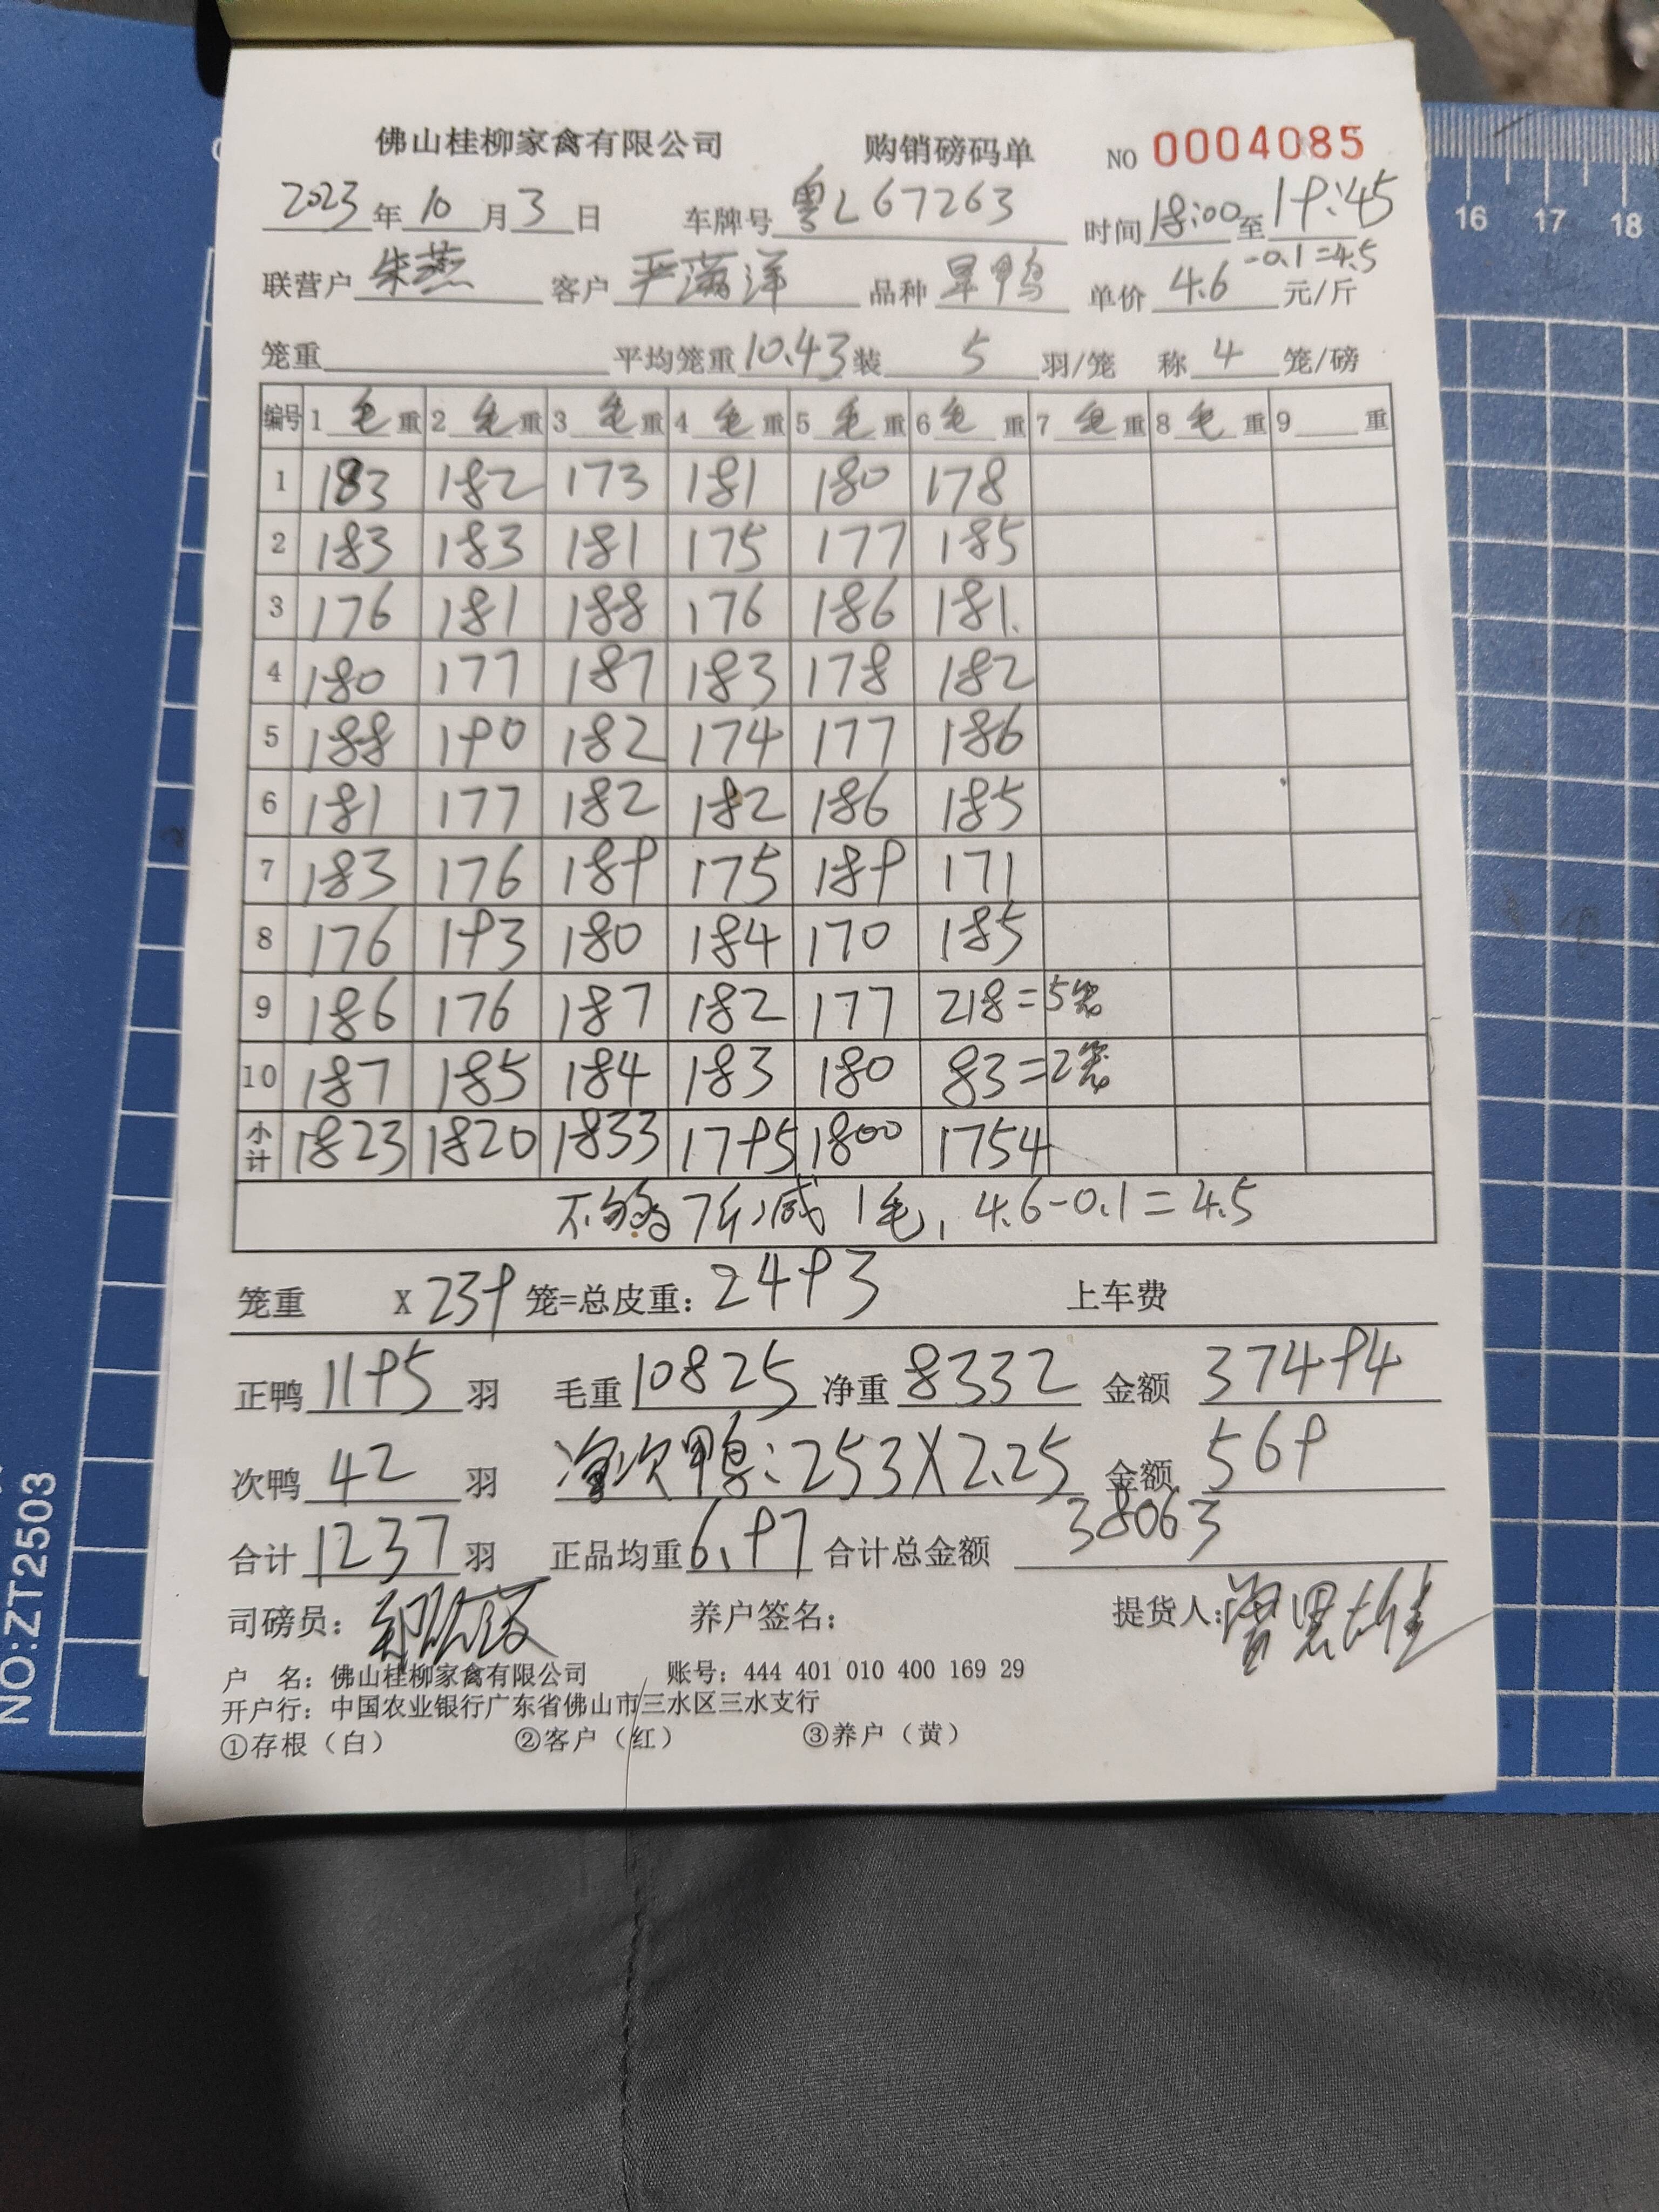 佛山桂柳家禽有限公司 购销磅码单 NO 0004085
2023年10月3日 车牌号 粤L67263 时间 18:00 至 19:45
-0.1=4.5
联营户 朱燕 客户 严满洋 品种 旱鸭 单价 4.6 元/斤
笼重 平均笼重 10.43 装 5 羽/笼 称 4 笼/磅
编号 1 毛 重 2 毛 重 3 毛 重 4 毛 重 5 毛 重 6 毛 重 7 毛 重 8 毛 重 9 重
1 183 182 173 181 180 178
2 183 183 181 175 177 185
3 176 181 188 176 186 181.
4 180 177 187 183 178 182
5 188 190 182 174 177 186
6 181 177 182 182 186 185
7 183 176 189 175 189 171
8 176 193 180 184 170 185
9 186 176 187 182 177 218=5笼
10 187 185 184 183 180 83=2笼
小计 1823 1820 1833 1795 1800 1754
不够7斤减1毛, 4.6-0.1=4.5
笼重 X 239 笼=总皮重: 2493 上车费
正鸭 1195 羽 毛重 10825 净重 8332 金额 37494
次鸭 42 羽 次鸭:253X2.25 金额 569
合计 1237 羽 正品均重 6.97 合计总金额 38063
司磅员: 养户签名: 提货人:曾思雄
户 名: 佛山桂柳家禽有限公司 账号: 444 401 010 400 169 29
开户行: 中国农业银行广东省佛山市三水区三水支行
①存根（白） ②客户（红） ③养户（黄）
16 17 18
NO:ZT2503